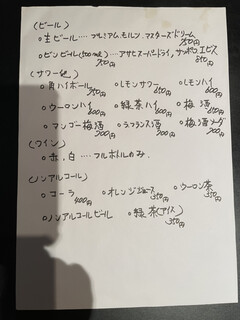 (ビール)
○生ビール‥‥プレミアム.モルツ.マスターズドリーム
750円
○ビンビール(500ml)‥‥アサヒスーパードライ,サッポロ,エビス
750円 850円
(サワー他)
○角ハイボール ○レモンサワー ○レモンハイ
550円 550円 600円
○ウーロンハイ ○緑茶ハイ ○梅酒
600円 600円 550円
○マンゴー梅酒 ○ラフランス酒 ○梅酒ソーダ
700円 700円 700円
(ワイン)
○赤,白‥‥フルボトルのみ.
(ノンアルコール)
○コーラ ○オレンジジュース ○ウーロン茶
400円 350円 350円
○ノンアルコールビール ○緑茶(アイス)
350円